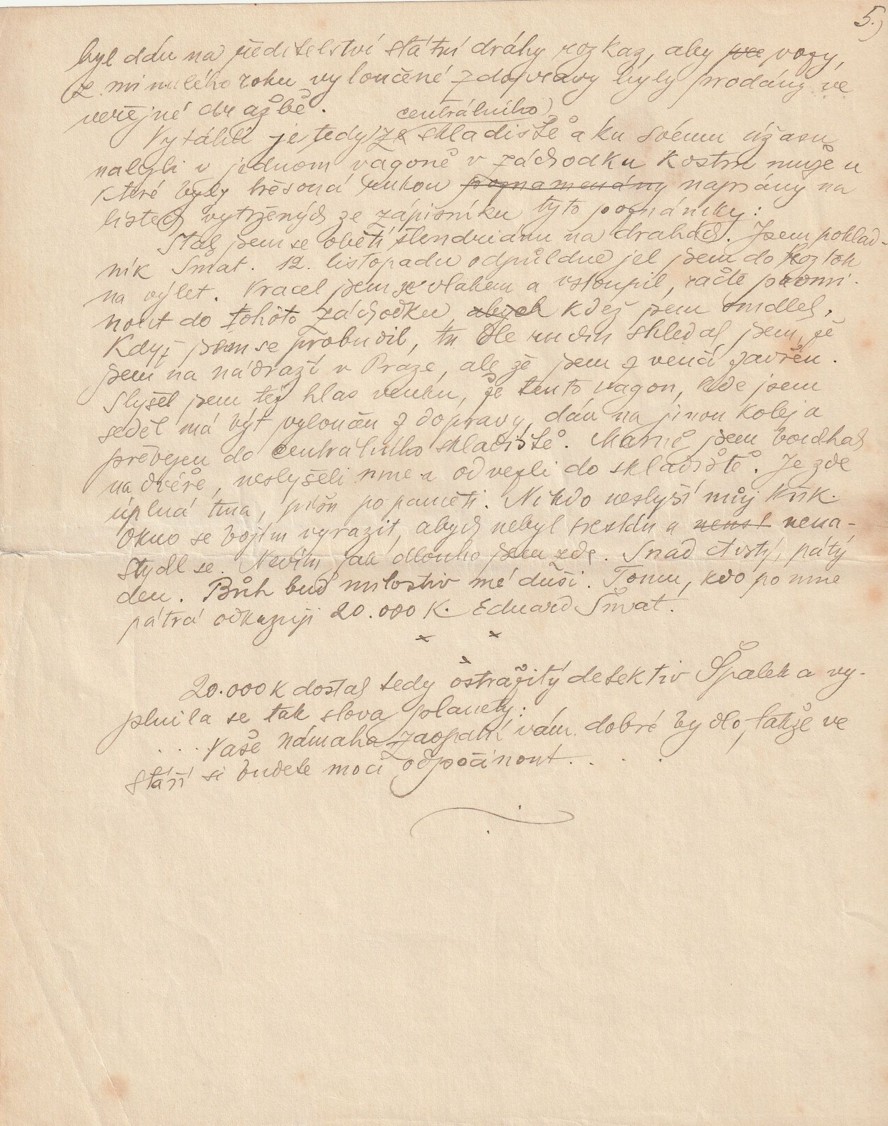 5.)
byl dán na ředitelství státní dráhy rozkaz, aby vozy,
z minulého roku vyloučené z dopravy byly prodány ve
veřejné dražbě.
centrálního
Vytáhli je tedy ze skladiště a ku svému úžasu
nalezli v jednom vagoně v záchodku kostru muže u
které byly třesoucí rukou poznamenány napsány na
listech vytržených ze zápisníku tyto poznámky:
Stal jsem se obětí šlendrianu na drahách. Jsem poklad-
ník Šmat. 12. listopadu odpůldne jel jsem do Roztok
na výlet. Vracel jsem se vlakem a vstoupil, račte promi-
nout do tohoto záchodku, abych kdež jsem omdlel.
Když jsem se probudil, tu dle rudin shledal jsem, že
jsem na nádraží v Praze, ale že jsem z venčí zavřen.
Slyšel jsem též hlas venku, že tento vagon, kde jsem
seděl má být vyloučen z dopravy, dán na jinou kolej a
převezen do centrálního skladiště. Marně jsem bouchal
na dvéře, neslyšeli mne a odvezli do skladiště. Je zde
úplná tma, píšu po paměti. Nikdo neslyší můj křik.
Okno se bojím vyrazit, abych nebyl trestán a nena-
stydl se. Nevím jak dlouho jsem zde. Snad čtvrtý, pátý
den. Bůh buď milostiv mé duši. Tomu, kdo po mne
pátrá odkazuji 20.000 K. Eduard Šmat.
× ×
20.000 K dostal tedy ostražitý detektiv Špalek a vy-
plnila se tak slova planety:
. . . . Vaše námaha zaopatří vám dobré bydlo, takže ve
stáří si budete moci odpočinout. . . . .